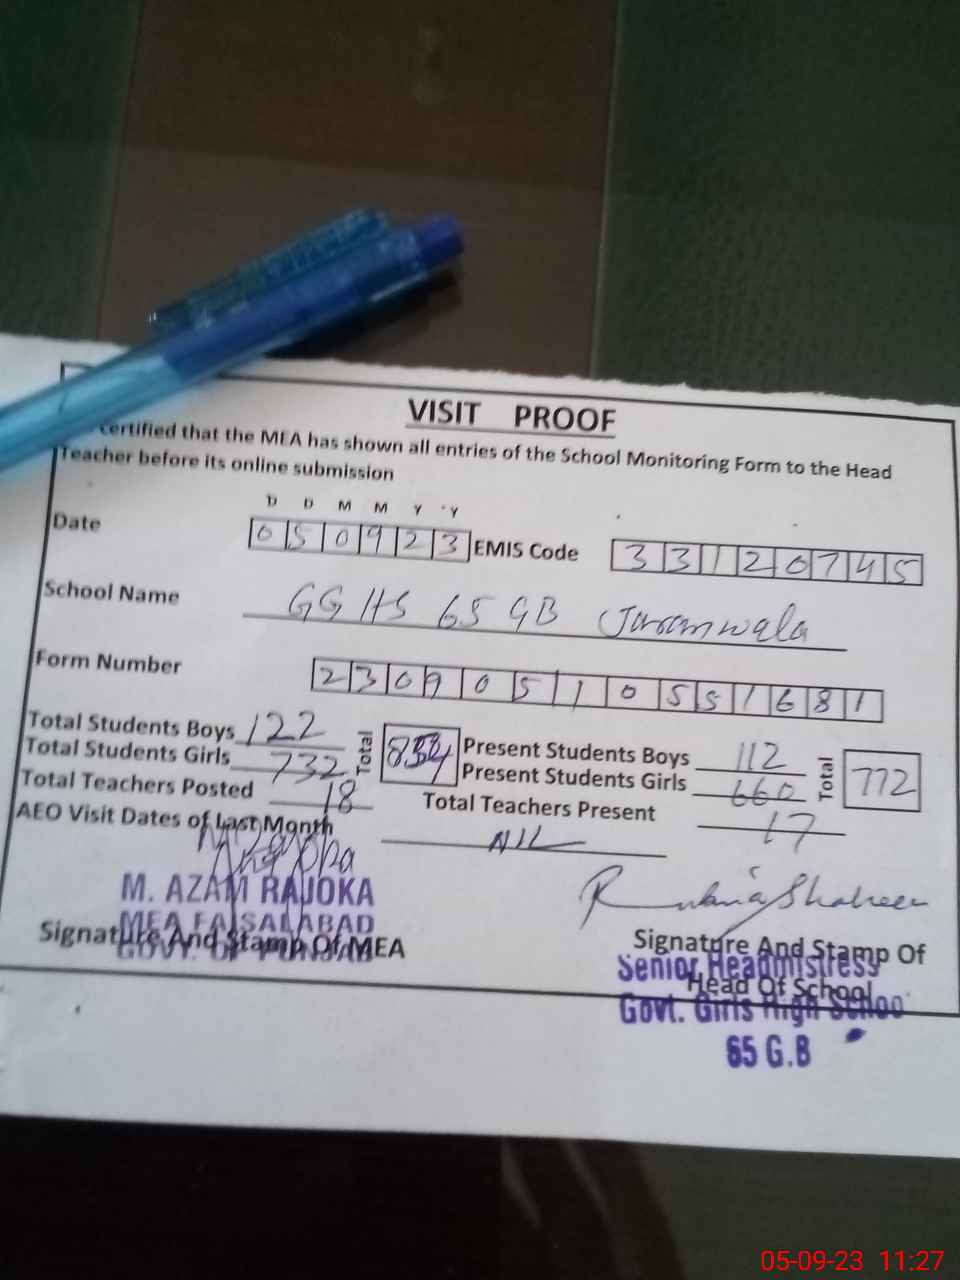 VISIT PROOF
certified that the MEA has shown all entries of the School Monitoring Form to the Head
Teacher before its online submission
D D M M Y Y
Date 050923 EMIS Code 33120745
School Name GGHS 65 GB Jaranwala
Form Number 23090510551681
Total Students Boys 122 Total 854 Present Students Boys 112 Total 772
Total Students Girls 732 Present Students Girls 660
Total Teachers Posted 18 Total Teachers Present 17
AEO Visit Dates of Last Month NIL
M. AZAM RAJOKA
MEA FAISALABAD
GOVT. OF PUNJAB
Signature And Stamp Of MEA
Rubina Shaheen
Signature And Stamp Of
Head Of School
Senior Headmistress
Govt. Girls High School
65 G.B
05-09-23 11:27